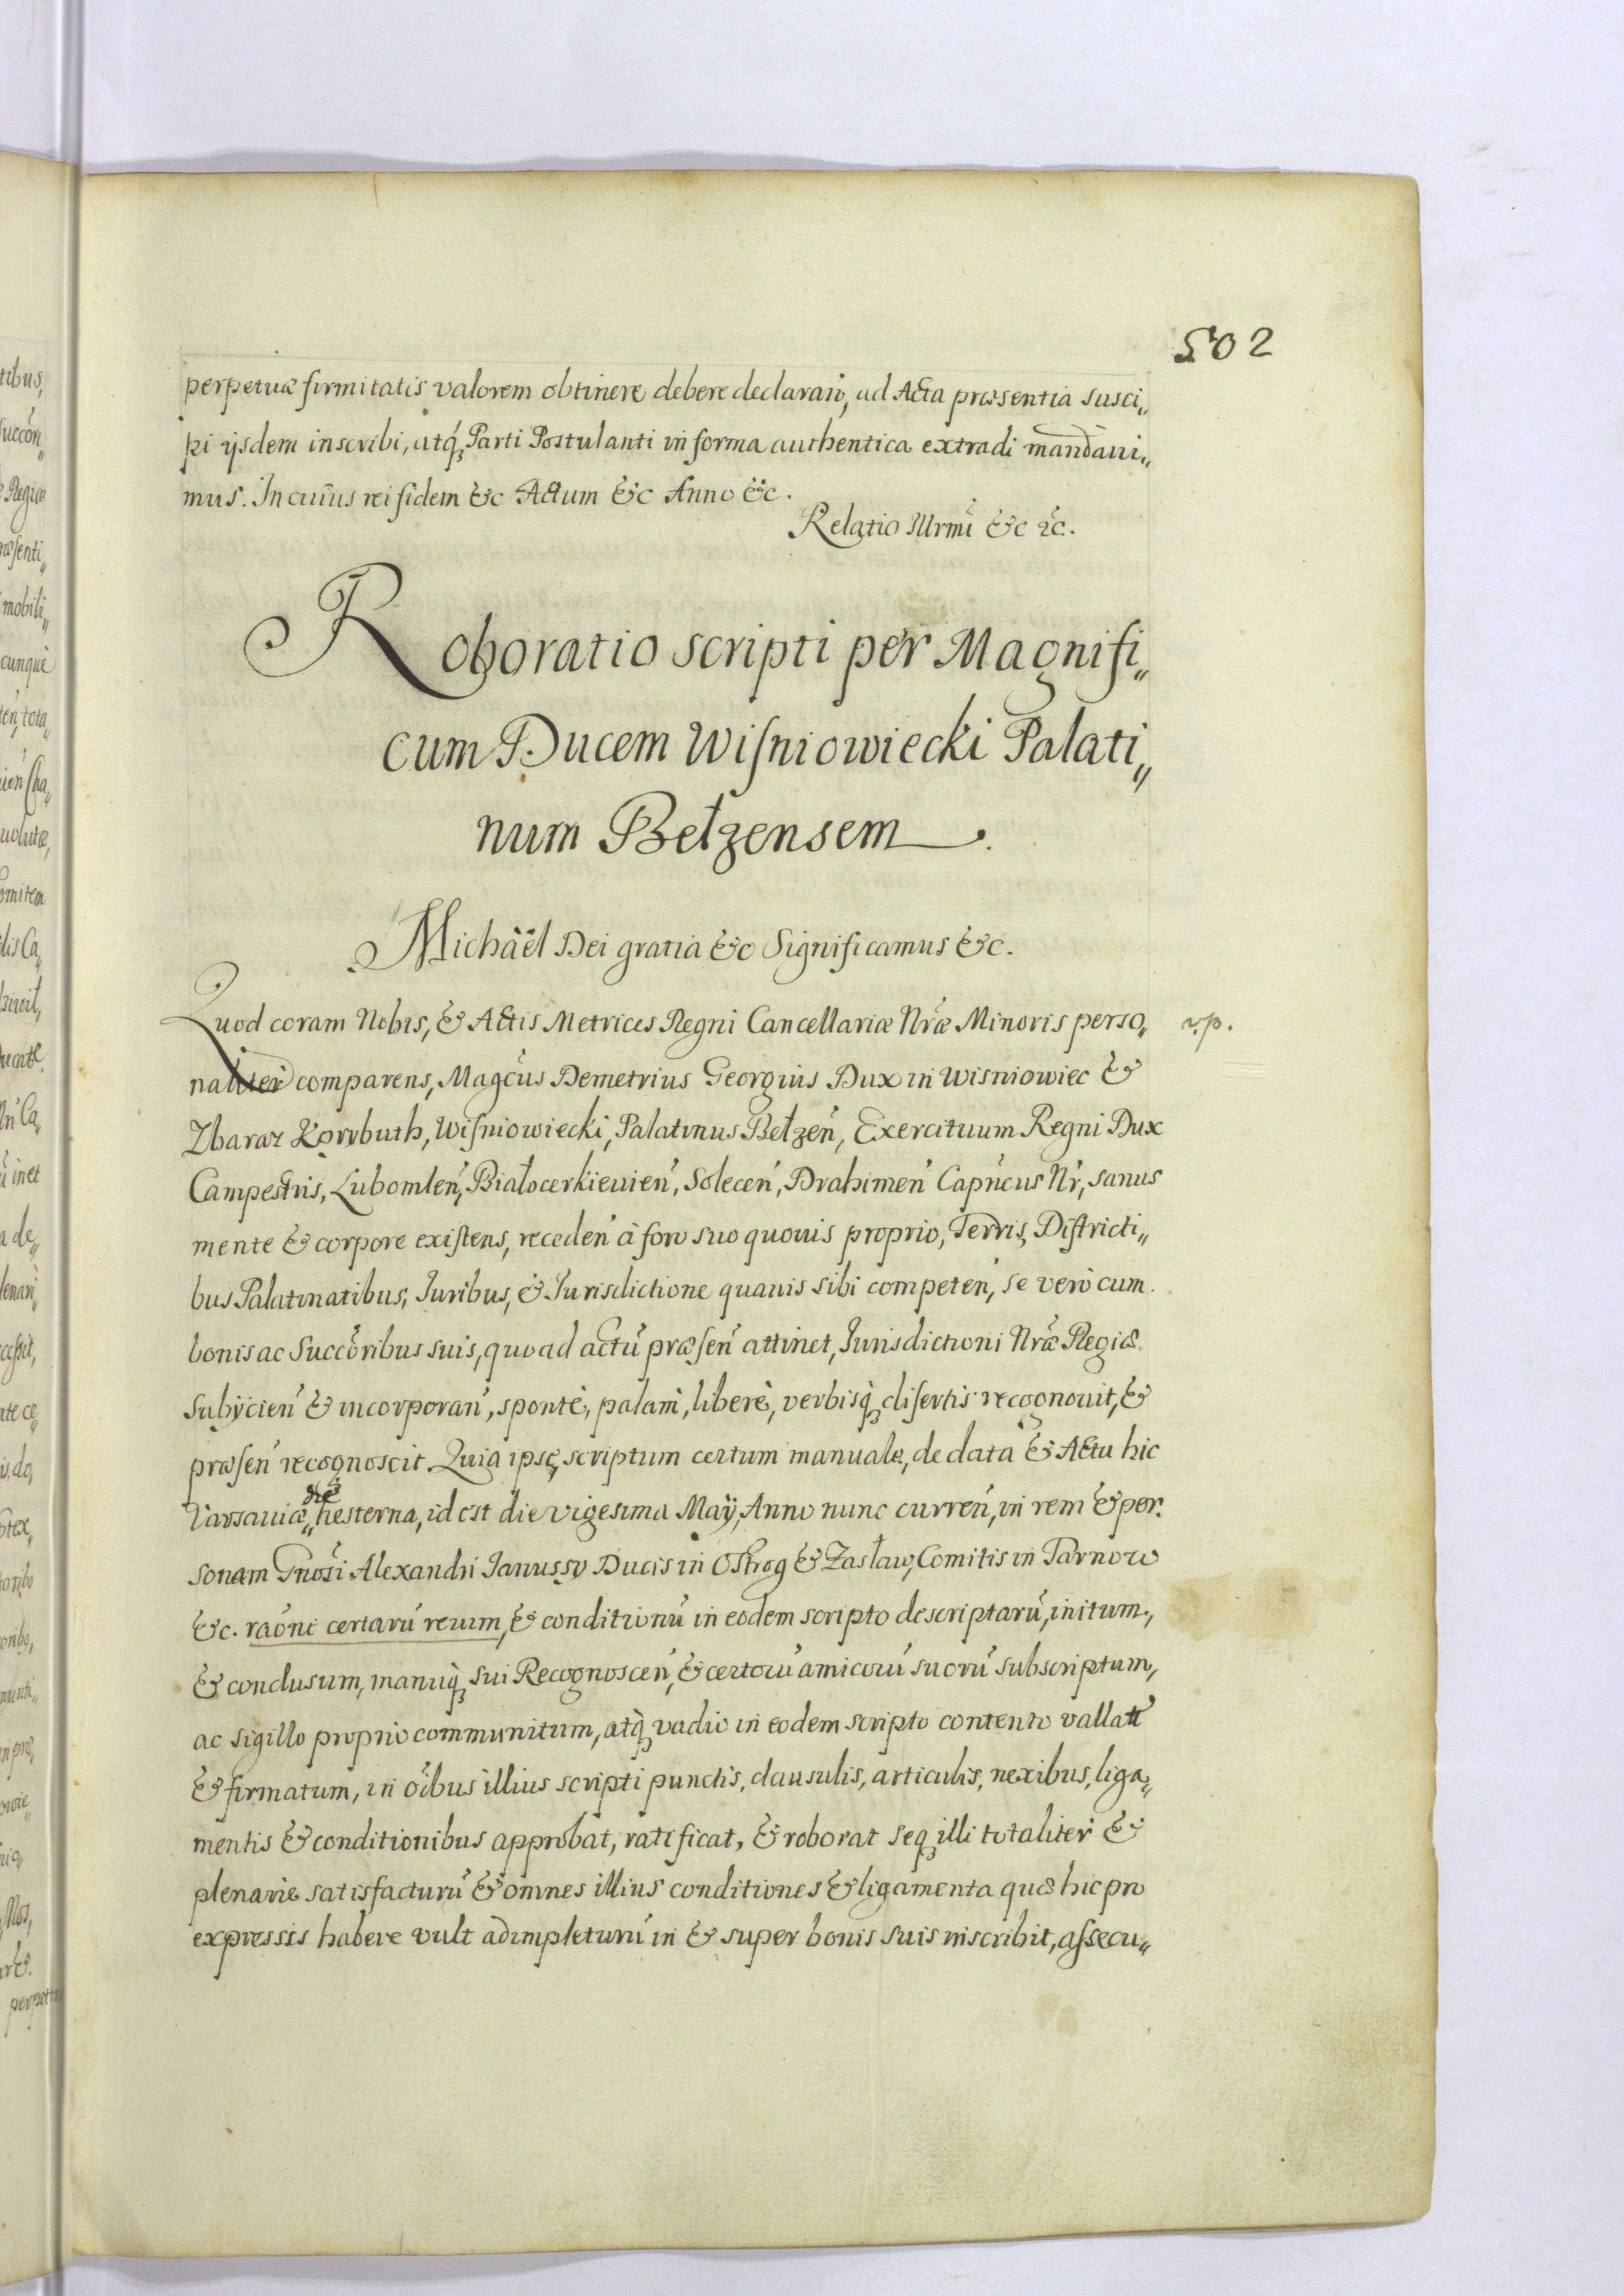 502
perpetuæ firmitatis valorem obtinere debere declarań, ad Acta præsentia susci„
pi ijsdem inscribi, atq́ꝫ Parti Postulanti in forma authentica extradi mandaui„
mus. In cuius rei fidem &c Actum &c Anno &c.
Relatio Illrmi &c &c.
Roboratio scripti per Magnifi„
cum Ducem Wiſniowiecki Palati„
num Bełzensem.
Michäel Dei gratia &c Significamus &c.
Quod coram Nobis, & Actis Metrices Regni Cancellariæ Nrǽ Minoris perso„ v.p.
naliter comparens, Magcús Demetrius Georgius Dux in Wisniowiec &
Zbaraz Korybuth, Wiſniowiecki, Palatinus Bełzeń, Exercituum Regni Dux
Campestris, Lubomleń, Białocerkieuień, Soleceń, Drahimeń Capńcus Nŕ, sanus
mente & corpore exiſtens, recedeń à foro suo quouis proprio, Terris, Diſtricti„
bus Palatinatibus, Juribus, & Jurisdictione quauis sibi competeń, se verò cum
bonis ac Succŏribus suis, quoad actū́ præſeń attinet, Jurisdictioni Nrǽ Regiæ
subijcień & incorporań, spontè, palam̀, liberè, verbisq́ꝫ diſertis recognouit, &
præſeń recognoscit. Quia ipse, scriptum certum manuale, de data & Actu hic
Varsauiæ„ die hesterna, id est die vigesima Maÿ, Anno nunc curreń, in rem & per.
sonam Gnosi Alexandri Janussy Ducis in Ostrog & Zasław, Comitis in Tarnow
&c. raóne certarū́ rerum, & conditionū́ in eodem scripto descriptarū́, initum,
& conclusum, manuq́ꝫ sui Recognosceń, & certorū́ amicorū́ suorū́ subscriptum,
ac sigillo proprio communitum, atq́ꝫ vadio in eodem scripto contento vallatū́
& firmatum, in oíbus illius scripti punctis, clausulis, articulis, nexibus, liga„
mentis & conditionibus approbat, ratificat, & roborat seqꝫ illi totaliter &
plenarie satisfacturū́ & omnes illius conditiones & ligamenta quæ hic pro
expressis habere vult adimpleturū́ in & super bonis suis inscribit, aſsecu„